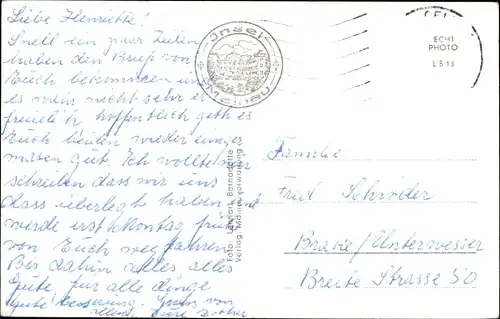 Liebe Henriette!
Snell ein paar Zeilen
haben den Brief von
Euch bekommen un
es war nicht sehr er
freulich hoffentlich geth es
Euch beiden wieder einiger
masen gut. Ich wollte nur
schreiben dass mir uns
dass überlegt haben und
werde erst Montag früh
von Euch weg fahren
Bis dahin alles alles
Gute für alle dinge
Gute besserung. Gruss von
allen. Eure
Insel
Mainau
ECHT
PHOTO
Foto: Lennart Bernadotte
Verlag: Mainauverwaltung
Familie
Fred Schröder
Brake/Unterweser
Breite Strasse 50